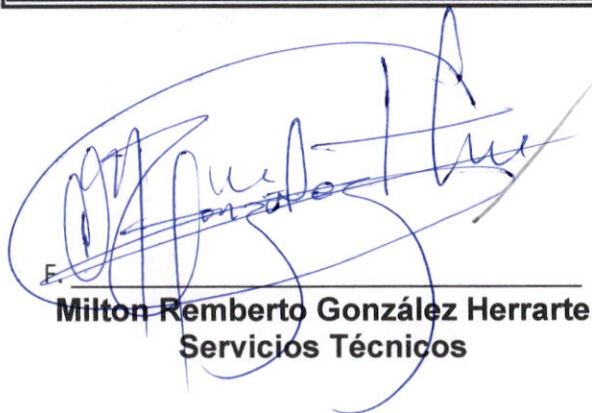 F.
Milton Remberto González Herrarte
Servicios Técnicos